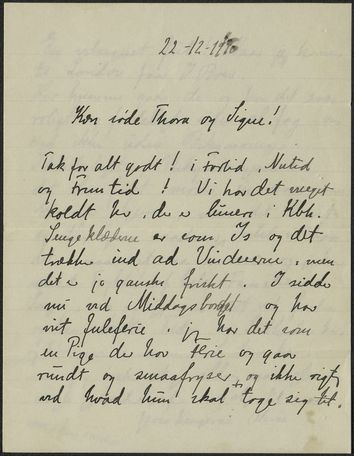 22-12-19
Kære søde Thora og Signe!
Tak for alt godt! i Fortid, Nutid
og Fremtid! Vi har det meget
koldt her, de er lunere i Kbh.
Sengeklæderne er som Is og det
trækker ind ad Vinduerne, men
det er jo ganske friskt. I sidder
nu ved Middagsbordet og har
vist Juleferie. jeg har det som
en Pige der har Ferie og gaar
rundt og smaafryser og ikke rigtig
ved hvad hun skal tage sig til.